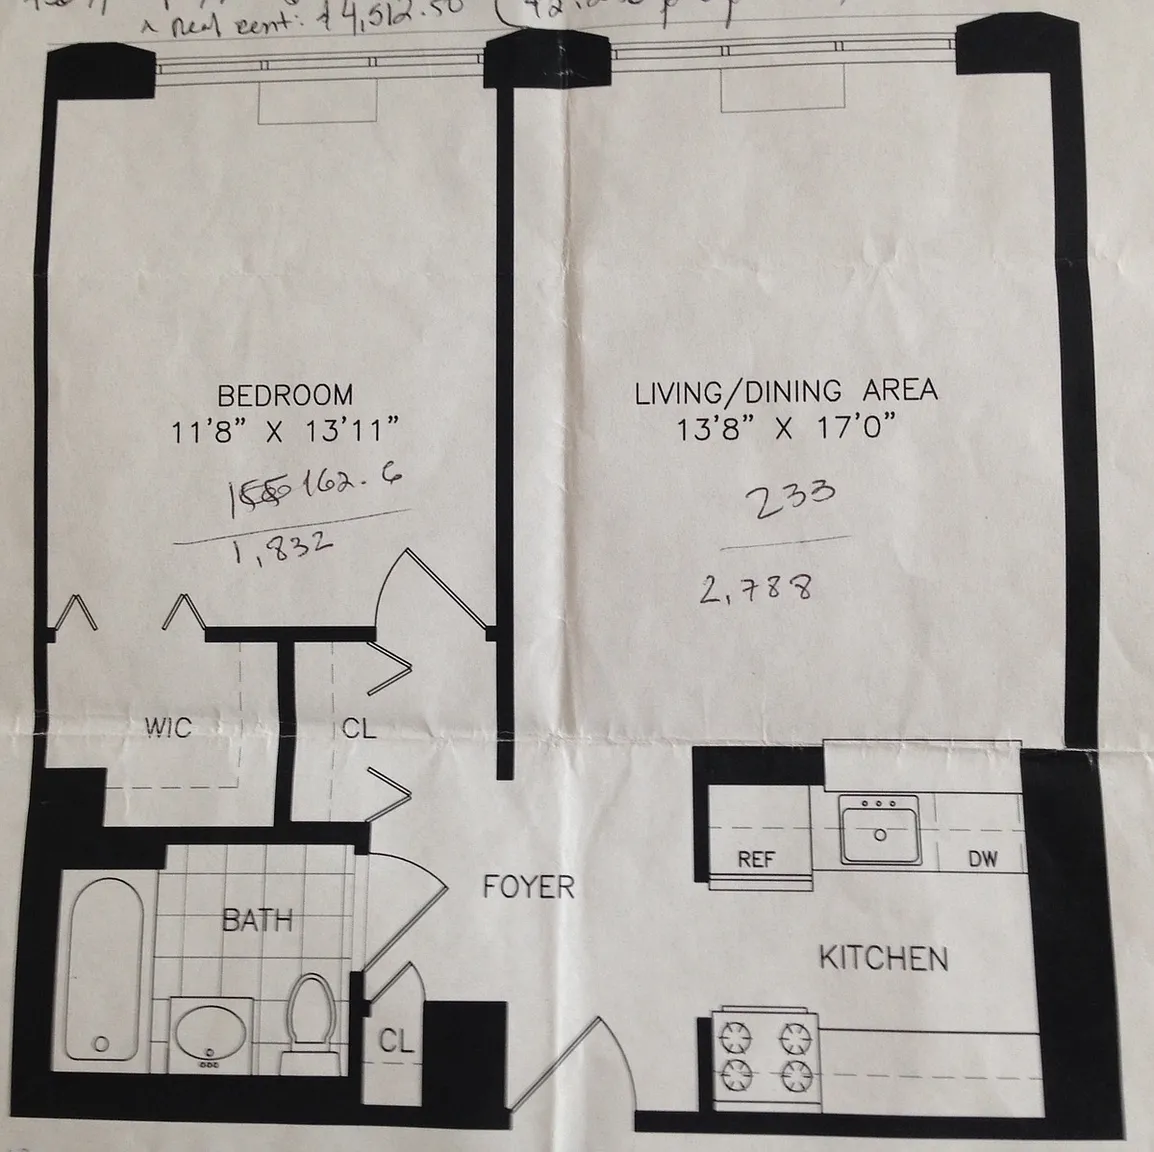 ^ Real rent: $4,512.50
BEDROOM
11'8" X 13'11"
162.6
1,832
LIVING/DINING AREA
13'8" X 17'0"
233
2,788
WIC
CL
REF
DW
FOYER
BATH
KITCHEN
CL